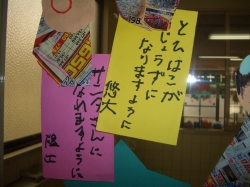 とびばこが
じょうずに
なりますように
悠大
サンタさんに
なれますように